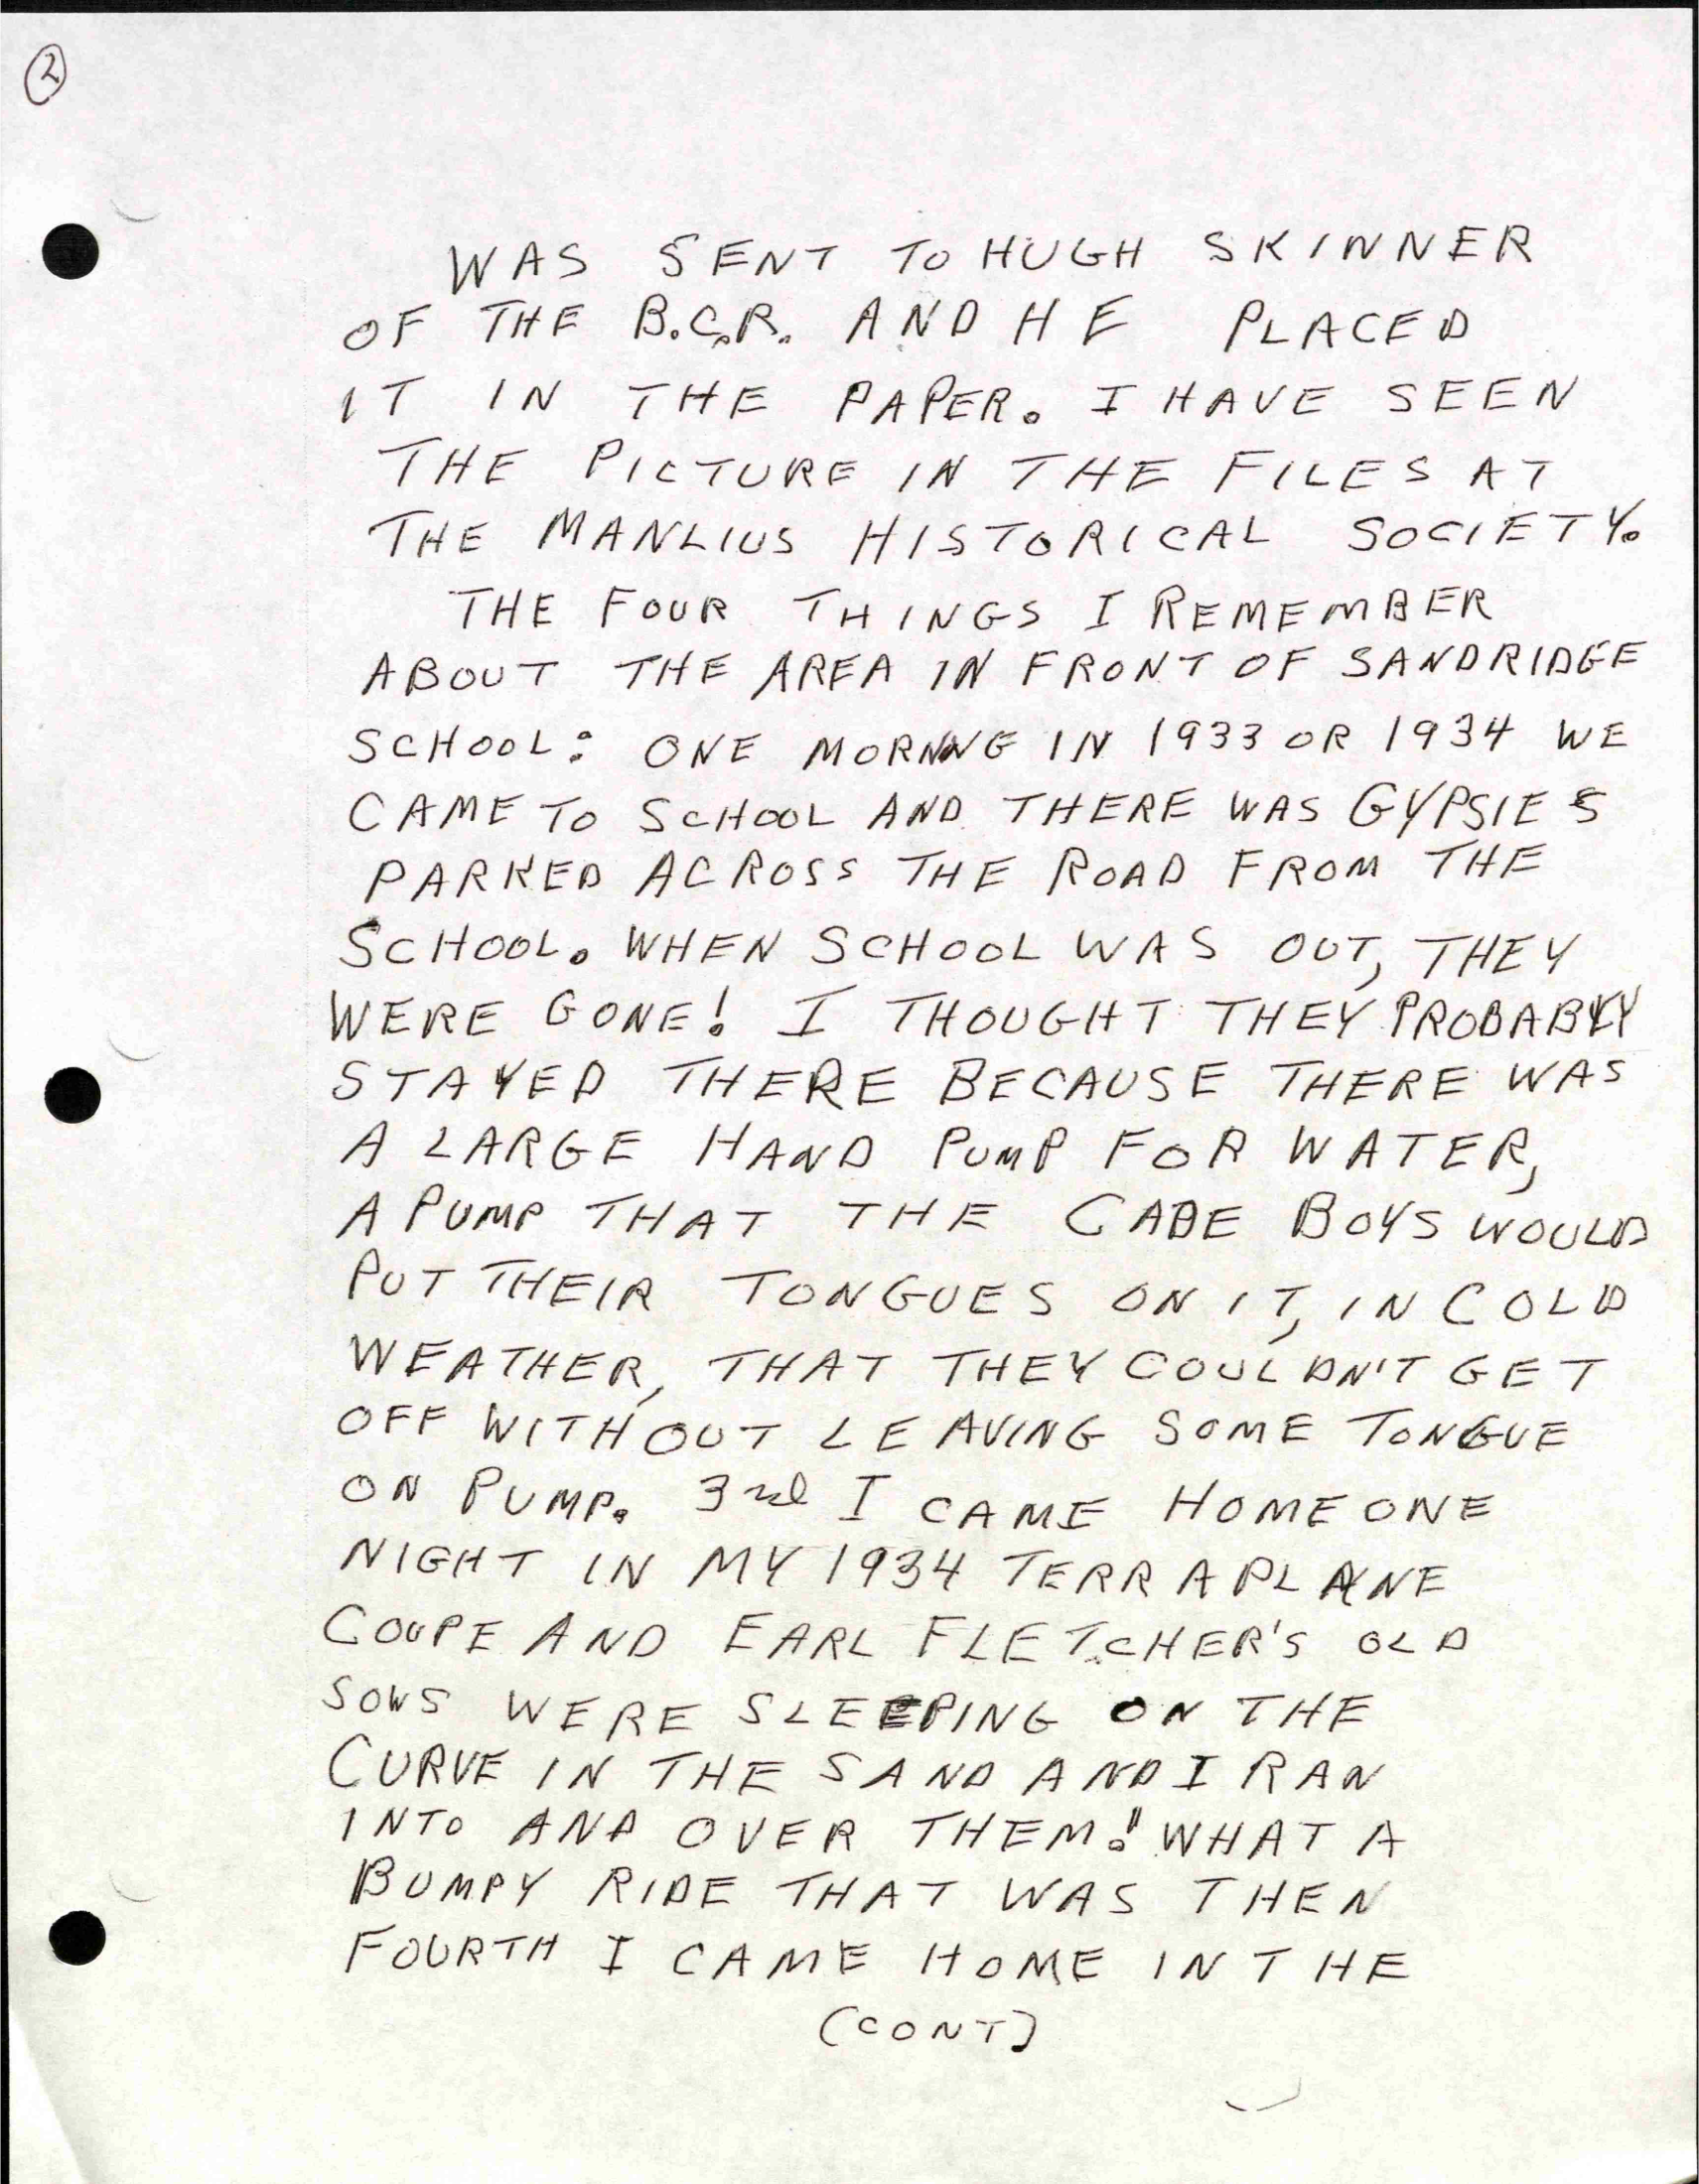 2
WAS SENT TO HUGH SKINNER
OF THE B.C.R. AND HE PLACED
IT IN THE PAPER. I HAVE SEEN
THE PICTURE IN THE FILES AT
THE MANLIUS HISTORICAL SOCIETY.
THE FOUR THINGS I REMEMBER
ABOUT THE AREA IN FRONT OF SANDRIDGE
SCHOOL: ONE MORNNG IN 1933 OR 1934 WE
CAME TO SCHOOL AND THERE WAS GYPSIES
PARKED ACROSS THE ROAD FROM THE
SCHOOL. WHEN SCHOOL WAS OUT, THEY
WERE GONE! I THOUGHT THEY PROBABLY
STAYED THERE BECAUSE THERE WAS
A LARGE HAND PUMP FOR WATER,
A PUMP THAT THE CABE BOYS WOULD
PUT THEIR TONGUES ON IT, IN COLD
WEATHER, THAT THEY COULDN'T GET
OFF WITHOUT LEAVING SOME TONGUE
ON PUMP. 3rd I CAME HOME ONE
NIGHT IN MY 1934 TERRAPLANE
COUPE AND EARL FLETCHER'S OLD
SOWS WERE SLEEPING ON THE
CURVE IN THE SAND AND I RAN
INTO AND OVER THEM! WHAT A
BUMPY RIDE THAT WAS THEN
FOURTH I CAME HOME IN THE
(CONT)